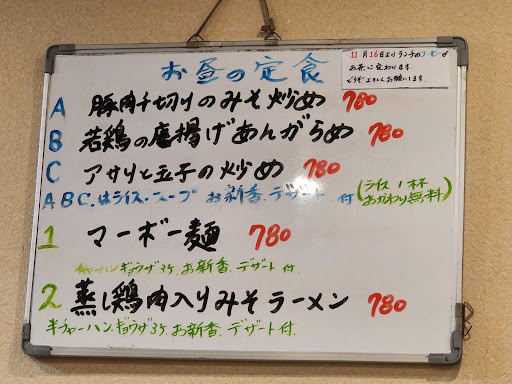 お昼の定食
11月16日よりランチのコーヒーが
お茶に変わります。
どうぞよろしくお願いします。
A 豚肉千切りのみそ炒め 780
B 若鶏の唐揚げあんがらめ 780
C アサリと玉子の炒め 780
ABC.はライス・スープ お新香.デザート 付(ライス1杯おかわり無料)
1 マーボー麺 780
半チャーハン ギョウザ3ケ.お新香.デザート付.
2 蒸し鶏肉入りみそラーメン 780
半チャーハン ギョウザ3ケ.お新香.デザート付.